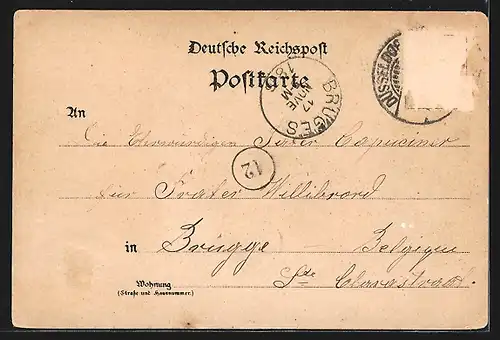 Deutsche Reichspost
Postkarte
DÜSSELDORF
BRUGES
17
NOVE
An
Die Ehrwürdigen Pater Capuciner
für Frater Willibrord
12
in Brügge - Belgique
Ste Clarastraat
Wohnung
(Straße und Hausnummer.)